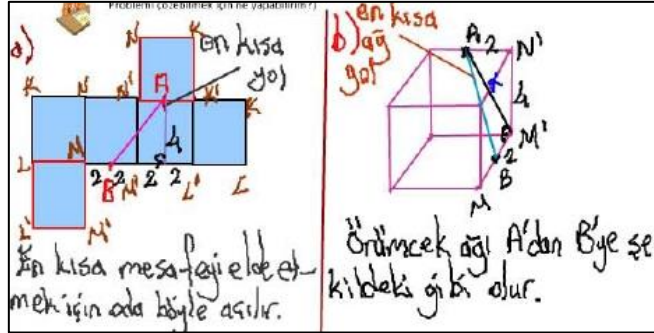 Problemi çözebilmek için ne yapabilirim?)
a)
N
K
en kısa
yol
A
K N N' K' K
4
L M
2 2 B M' 2 2 L' L
L' M'
En kısa mesafeyi elde et-
mek için oda böyle açılır.
b)
en kısa
ağ
yol
A 2 N'
K
4
M'
2
B
M
Örümcek ağı A'dan B'ye şe
kildeki gibi olur.